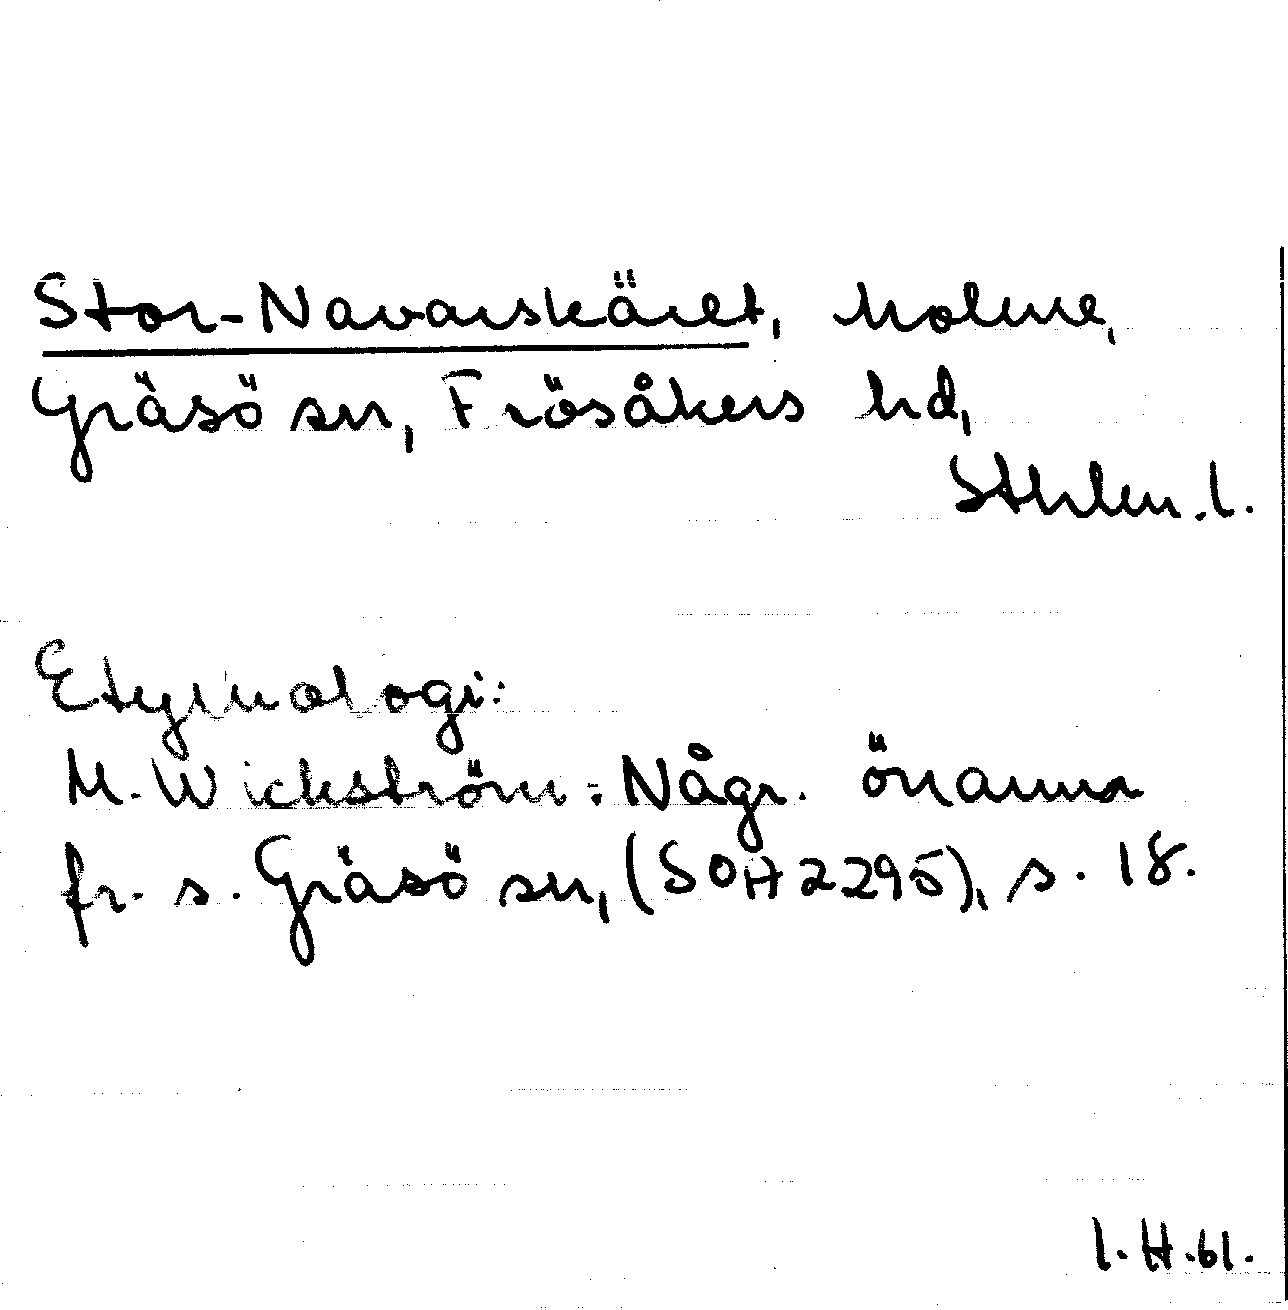 Stor-Navarskäret, holme,
Gräsö sn, Frösåkers hd,
Sthlm.l.
Etymologi:
M. Wickström: Någr. önamn
fr. s. Gräsö sn, (SOH 2295), s. 18.
I.H.61.